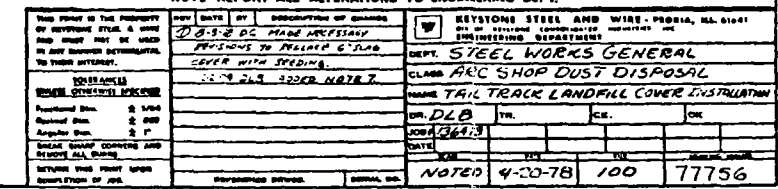 NOTE REPORT ANY ALTERATIONS TO ENGINEERING DEPT.
THIS PRINT IS THE PROPERTY
OF KEYSTONE STEEL & WIRE
AND MUST NOT BE USED
IN ANY MANNER DETRIMENTAL
TO THEIR INTEREST.
TOLERANCES
UNLESS OTHERWISE SPECIFIED
Fractional Dim. ± 1/64
Decimal Dim. ±
Angular Dim. ± 1°
BREAK SHARP CORNERS AND
REMOVE ALL BURRS
RETURN THIS PRINT UPON
COMPLETION OF JOB.
REV DATE BY DESCRIPTION OF CHANGE
MADE NECESSARY
REVISIONS TO REPLACE 6" SLAG
COVER WITH SEEDING.
DLB ADDED NOTE 7.
REFERENCE DRWGS. SERIAL NO.
KEYSTONE STEEL AND WIRE - PEORIA, ILL. 61641
ENGINEERING DEPARTMENT
DEPT. STEEL WORKS GENERAL
CLASS ARC SHOP DUST DISPOSAL
NAME TAIL TRACK LANDFILL COVER INSTALLATION
DR. DLB TR. CK. OK
JOB# 136413
DATE
SCALE DATE FILE
NOTED 4-20-78 100 77756